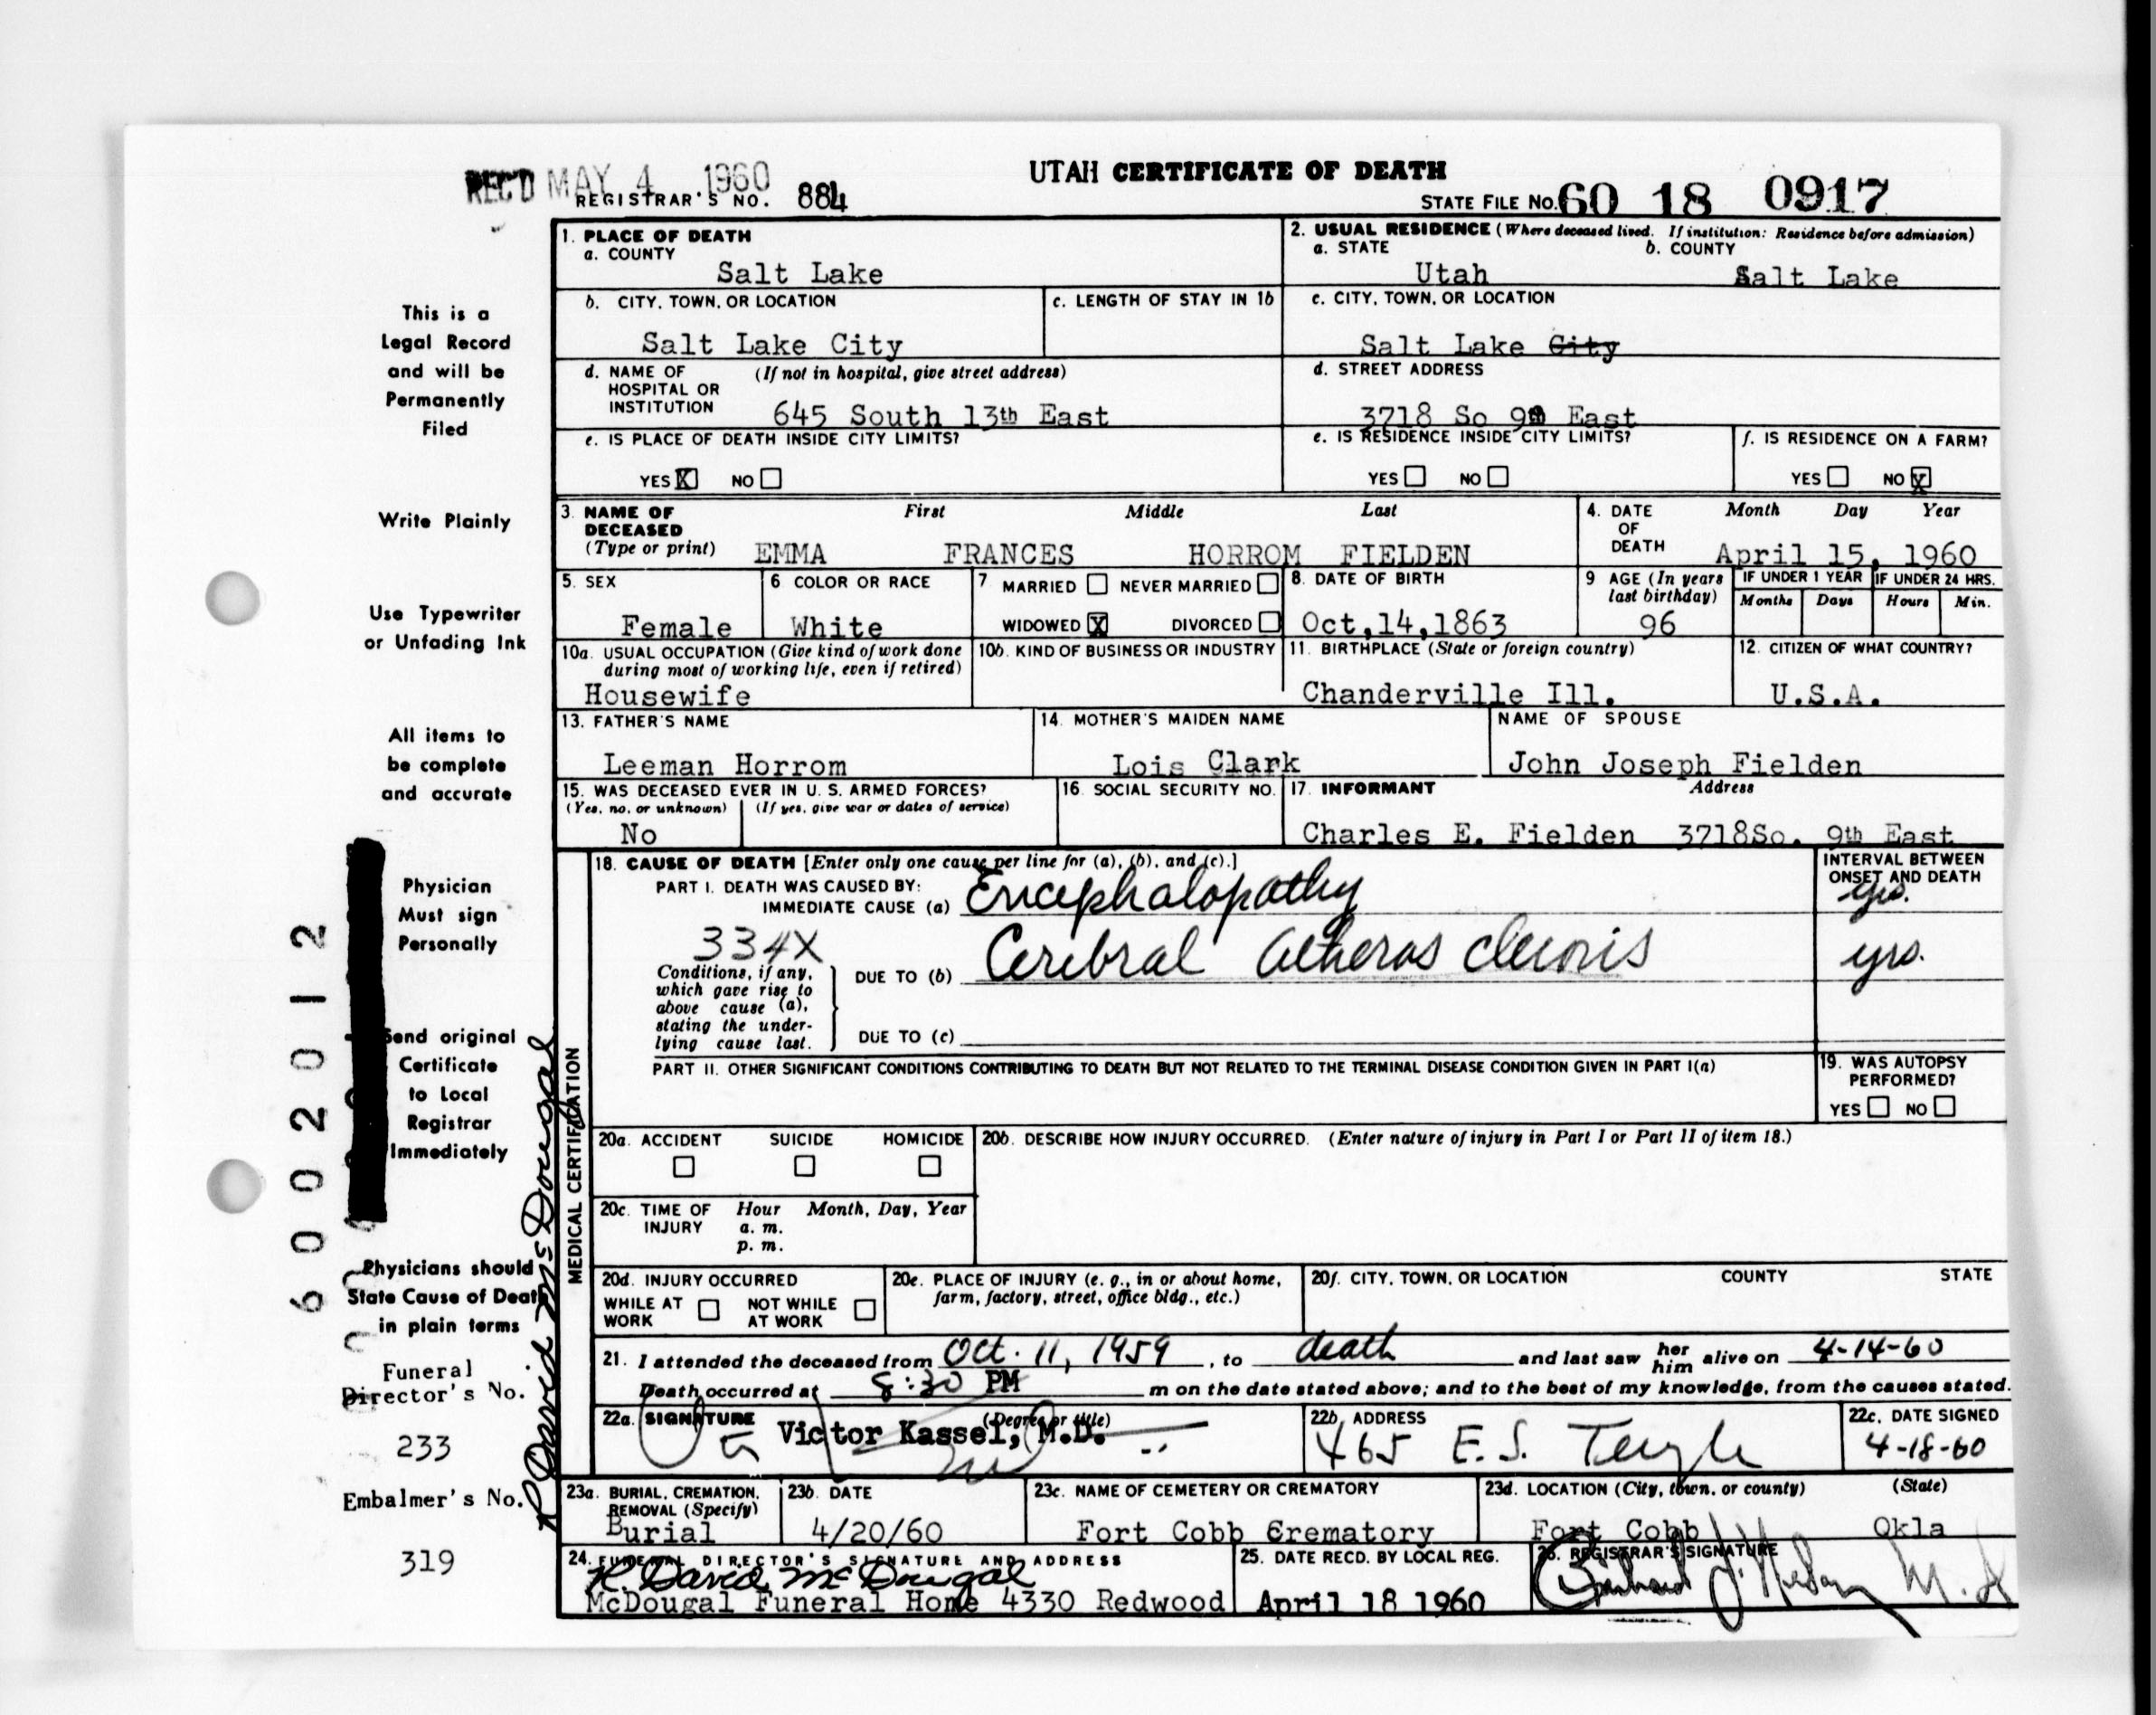 UTAH CERTIFICATE OF DEATH
REC'D MAY 4 1960
REGISTRAR'S NO. 884
STATE FILE NO. 60 18 0917
1. PLACE OF DEATH
a. COUNTY
Salt Lake
2. USUAL RESIDENCE (Where deceased lived. If institution: Residence before admission)
a. STATE b. COUNTY
Utah Salt Lake
b. CITY, TOWN, OR LOCATION
Salt Lake City
c. LENGTH OF STAY IN 1b
c. CITY, TOWN, OR LOCATION
Salt Lake City
d. NAME OF (If not in hospital, give street address)
HOSPITAL OR
INSTITUTION 645 South 13th East
d. STREET ADDRESS
3718 So 9th East
e. IS PLACE OF DEATH INSIDE CITY LIMITS?
YES X NO
e. IS RESIDENCE INSIDE CITY LIMITS?
YES NO
f. IS RESIDENCE ON A FARM?
YES NO X
3. NAME OF DECEASED First Middle Last
(Type or print) EMMA FRANCES HORROM FIELDEN
4. DATE OF DEATH Month Day Year
April 15, 1960
5. SEX
Female
6 COLOR OR RACE
White
7 MARRIED NEVER MARRIED
WIDOWED X DIVORCED
8. DATE OF BIRTH
Oct,14,1863
9 AGE (In years last birthday)
96
IF UNDER 1 YEAR IF UNDER 24 HRS.
Months Days Hours Min.
10a. USUAL OCCUPATION (Give kind of work done
during most of working life, even if retired)
Housewife
10b. KIND OF BUSINESS OR INDUSTRY
11. BIRTHPLACE (State or foreign country)
Chanderville Ill.
12. CITIZEN OF WHAT COUNTRY?
U.S.A.
13. FATHER'S NAME
Leeman Horrom
14. MOTHER'S MAIDEN NAME
Lois Clark
NAME OF SPOUSE
John Joseph Fielden
15. WAS DECEASED EVER IN U. S. ARMED FORCES?
(Yes, no, or unknown) (If yes, give war or dates of service)
No
16. SOCIAL SECURITY NO.
17. INFORMANT Address
Charles E. Fielden 3718So. 9th East
MEDICAL CERTIFICATION
18. CAUSE OF DEATH [Enter only one cause per line for (a), (b), and (c).]
PART I. DEATH WAS CAUSED BY:
IMMEDIATE CAUSE (a) Encephalopathy
INTERVAL BETWEEN
ONSET AND DEATH
yrs.
334X
Conditions, if any,
which gave rise to
above cause (a),
stating the under-
lying cause last.
DUE TO (b) Cerebral atherosclerosis yrs.
DUE TO (c)
PART II. OTHER SIGNIFICANT CONDITIONS CONTRIBUTING TO DEATH BUT NOT RELATED TO THE TERMINAL DISEASE CONDITION GIVEN IN PART I(a)
19. WAS AUTOPSY
PERFORMED?
YES NO
20a. ACCIDENT SUICIDE HOMICIDE
20b. DESCRIBE HOW INJURY OCCURRED. (Enter nature of injury in Part I or Part II of item 18.)
20c. TIME OF INJURY Hour Month, Day, Year
a. m.
p. m.
20d. INJURY OCCURRED
WHILE AT WORK NOT WHILE AT WORK
20e. PLACE OF INJURY (e. g., in or about home,
farm, factory, street, office bldg., etc.)
20f. CITY, TOWN, OR LOCATION COUNTY STATE
21. I attended the deceased from Oct. 11, 1959, to death and last saw her him alive on 4-14-60
Death occurred at 8:30 PM m on the date stated above; and to the best of my knowledge, from the causes stated.
22a. SIGNATURE (Degree or title)
Victor Kassel, M.D.
22b. ADDRESS
465 E. S. Temple
22c. DATE SIGNED
4-18-60
23a. BURIAL, CREMATION,
REMOVAL (Specify)
Burial
23b. DATE
4/20/60
23c. NAME OF CEMETERY OR CREMATORY
Fort Cobb Crematory
23d. LOCATION (City, town, or county) (State)
Fort Cobb Okla
24. FUNERAL DIRECTOR'S SIGNATURE AND ADDRESS
R. David McDougal
McDougal Funeral Home 4330 Redwood
25. DATE RECD. BY LOCAL REG.
April 18 1960
26. REGISTRAR'S SIGNATURE
This is a
Legal Record
and will be
Permanently
Filed
Write Plainly
Use Typewriter
or Unfading Ink
All items to
be complete
and accurate
Physician
Must sign
Personally
Send original
Certificate
to Local
Registrar
Immediately
Physicians should
State Cause of Death
in plain terms
Funeral
Director's No.
233
Embalmer's No.
319
R David McDougal
6002012